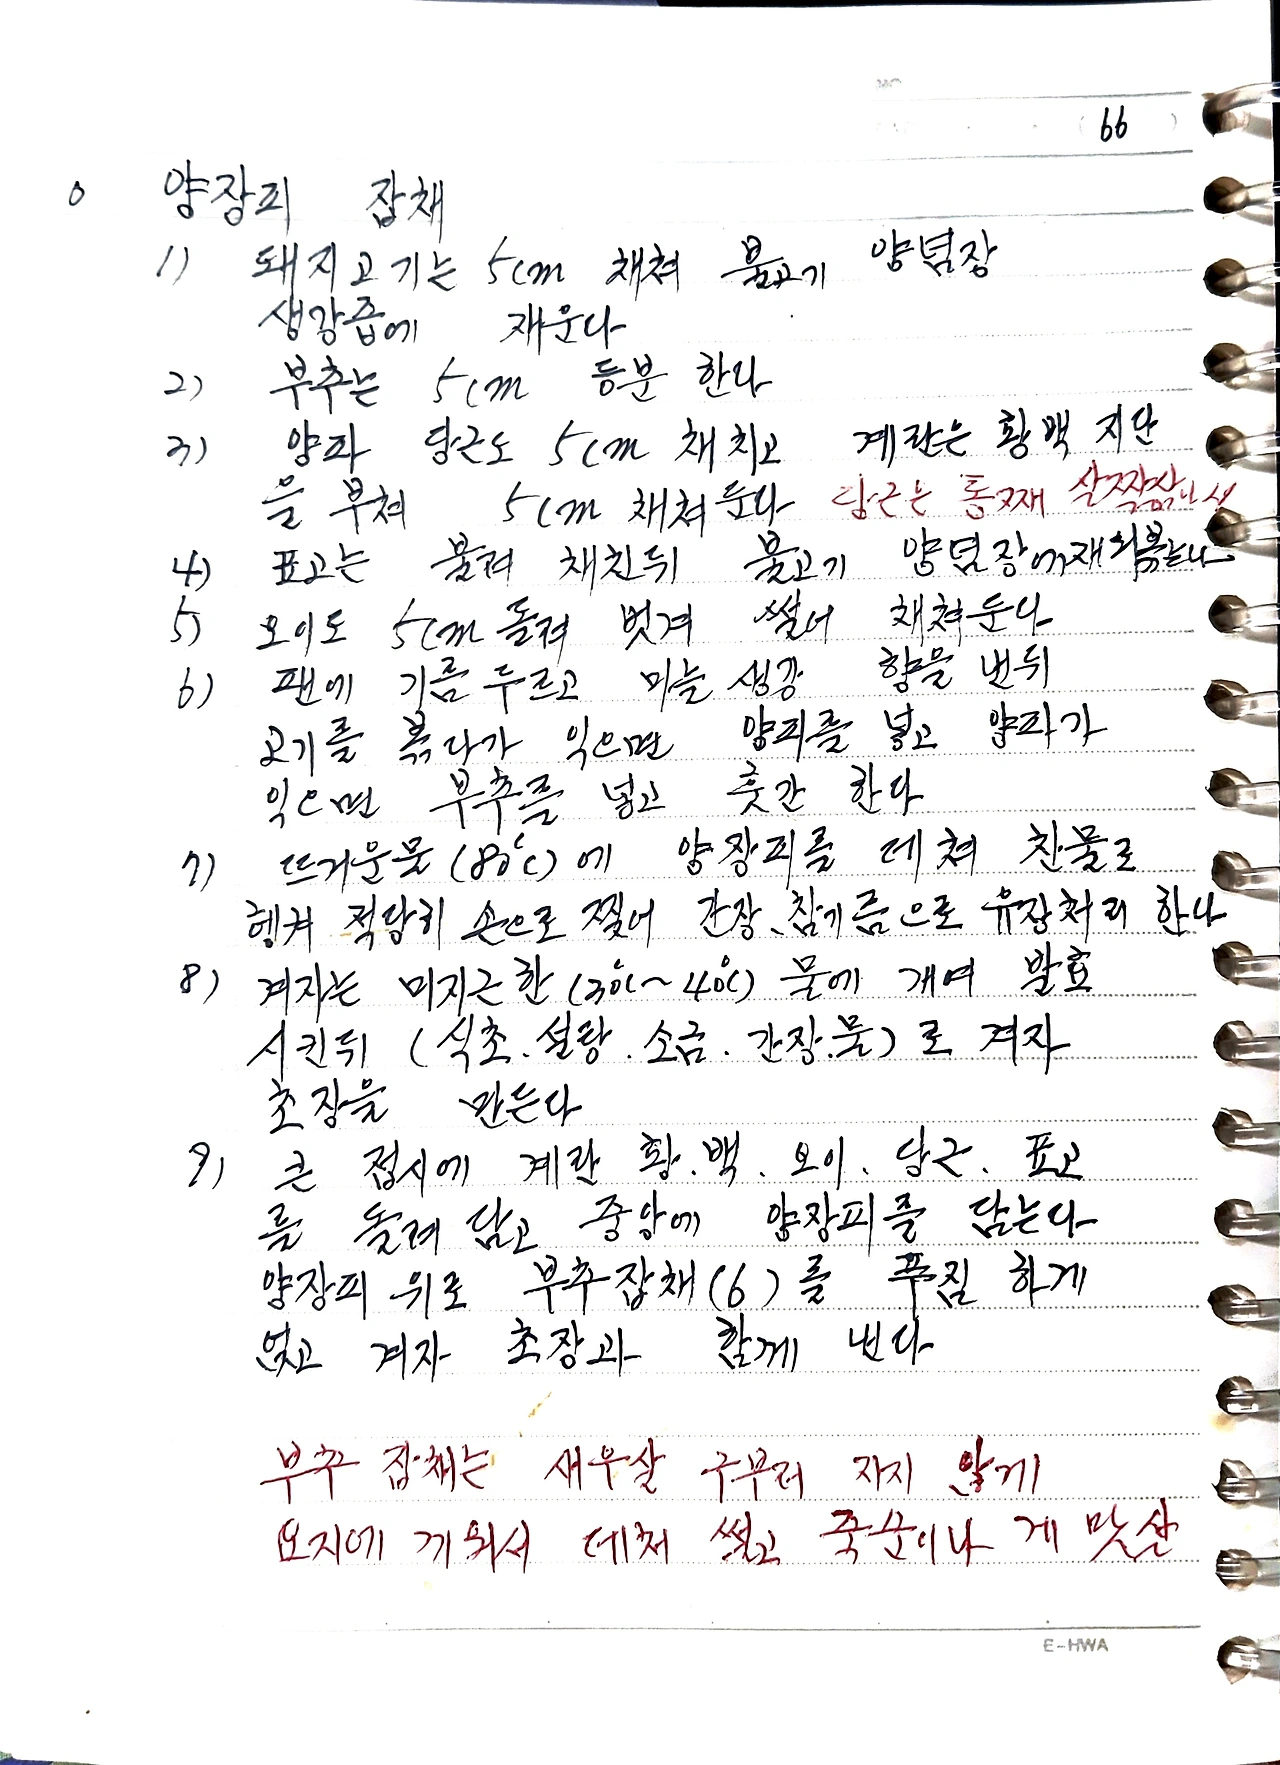 66
o 양장피 잡채
1) 돼지고기는 5cm 채쳐 불고기 양념장
생강즙에 재운다
2) 부추는 5cm 등분 한다
3) 양파 당근도 5cm 채치고 계란은 황백 지단
을 부쳐 5cm 채쳐둔다 당근은 통째 살짝삶아서
4) 표고는 불려 채친뒤 불고기 양념장에재워볶는다
5) 오이도 5cm 돌려 벗겨 썰어 채쳐둔다
6) 팬에 기름 두르고 마늘 생강 향을 낸뒤
고기를 볶다가 익으면 양파를 넣고 양파가
익으면 부추를 넣고 훗간 한다
7) 뜨거운물 (80℃)에 양장피를 데쳐 찬물로
헹켜 적당히 손으로 찢어 간장、참기름으로 유장처리 한다
8) 겨자는 미지근한 (30℃~40℃) 물에 개여 발효
시킨뒤 (식초.설탕.소금.간장.물)로 겨자
초장을 만든다
9) 큰 접시에 계란 황.백.오이.당근.표고
를 돌려 담고 중앙에 양장피를 담는다
양장피 위로 부추잡채(6)를 푸짐 하게
얹고 겨자 초장과 함께 낸다
부추 잡채는 새우살 구부러 지지 않게
요지에 끼워서 데쳐 썰고 죽순이나 게 맛살
E-HWA